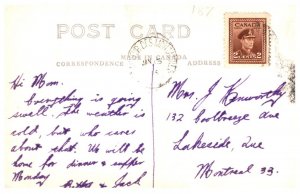 18/-
POST CARD
CANADA
MADE IN CANADA
CORRESPONDENCE
2 2
Hi Mom.
Everything is going
swell. The weather is
cold, but who cares
about that. We will be
home for dinner & supper
Monday
& Jack
Mrs. J. Kenworthy
132
Lakeside, Que
Montreal 33.